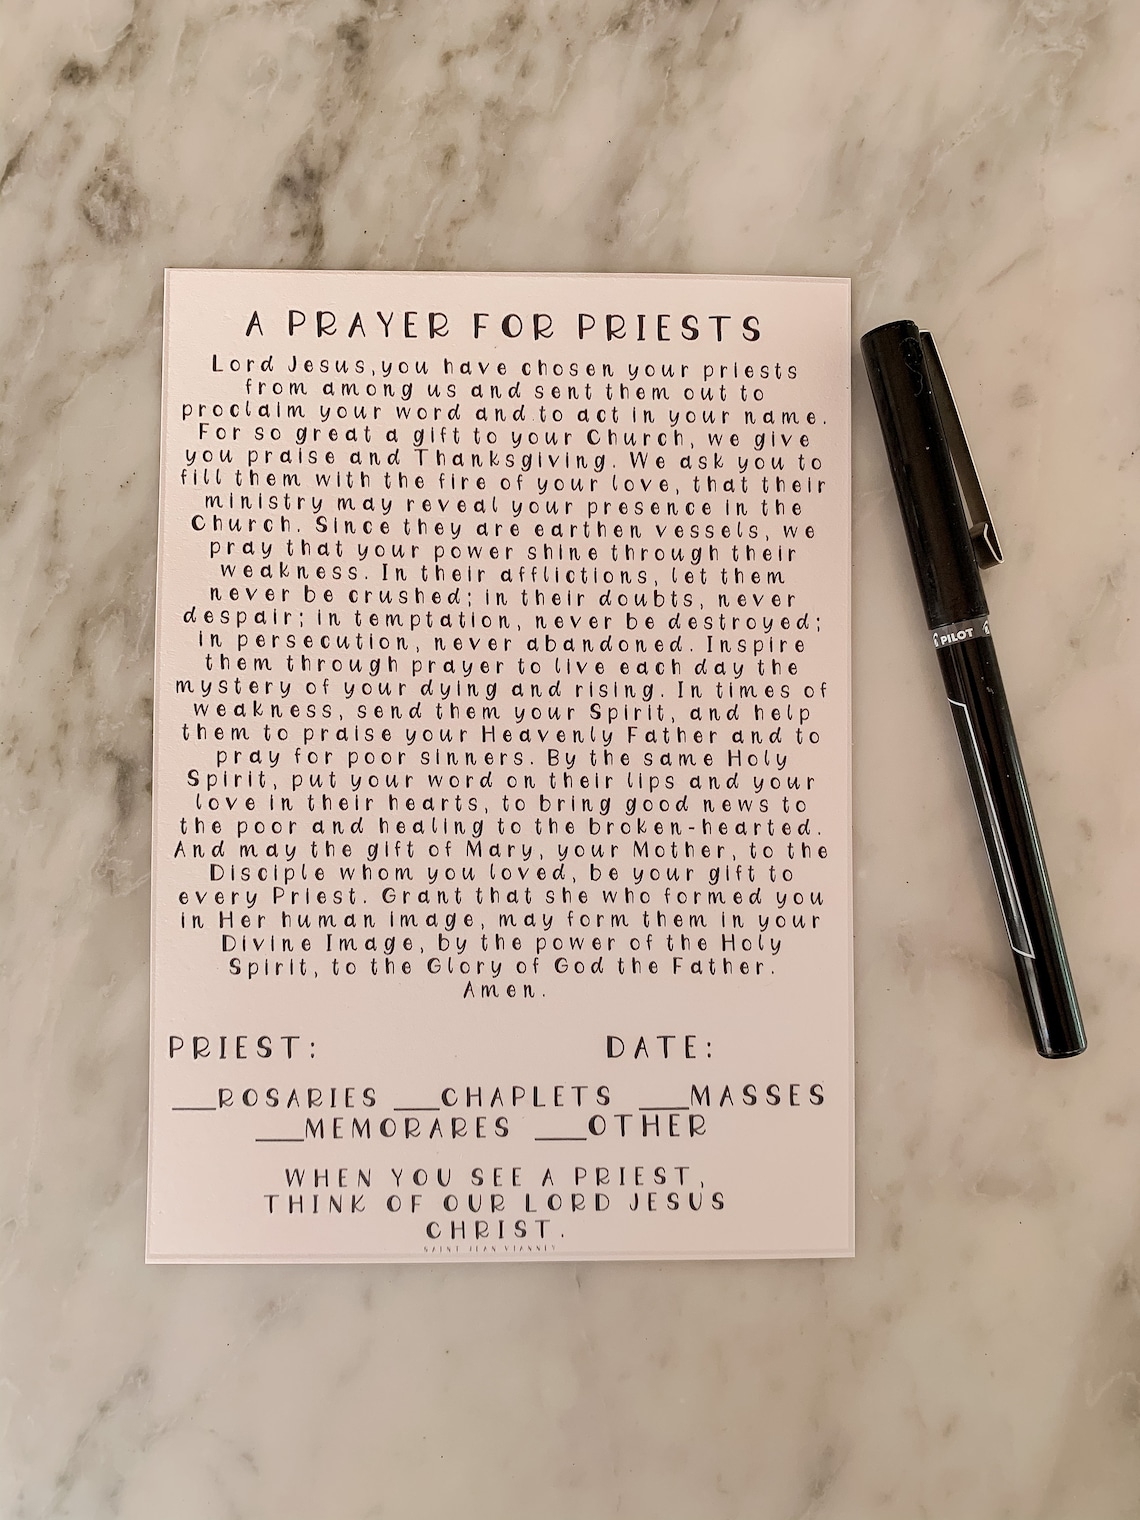 A PRAYER FOR PRIESTS
Lord Jesus, you have chosen your priests
from among us and sent them out to
proclaim your word and to act in your name.
For so great a gift to your Church, we give
you praise and Thanksgiving. We ask you to
fill them with the fire of your love, that their
ministry may reveal your presence in the
Church. Since they are earthen vessels, we
pray that your power shine through their
weakness. In their afflictions, let them
never be crushed; in their doubts, never
despair; in temptation, never be destroyed;
in persecution, never abandoned. Inspire
them through prayer to live each day the
mystery of your dying and rising. In times of
weakness, send them your Spirit, and help
them to praise your Heavenly Father and to
pray for poor sinners. By the same Holy
Spirit, put your word on their lips and your
love in their hearts, to bring good news to
the poor and healing to the broken-hearted.
And may the gift of Mary, your Mother, to the
Disciple whom you loved, be your gift to
every Priest. Grant that she who formed you
in Her human image, may form them in your
Divine Image, by the power of the Holy
Spirit, to the Glory of God the Father.
Amen.
PRIEST: DATE:
___ROSARIES ___CHAPLETS ___MASSES
___MEMORARES ___OTHER
WHEN YOU SEE A PRIEST,
THINK OF OUR LORD JESUS
CHRIST.
SAINT JEAN VIANNEY
PILOT